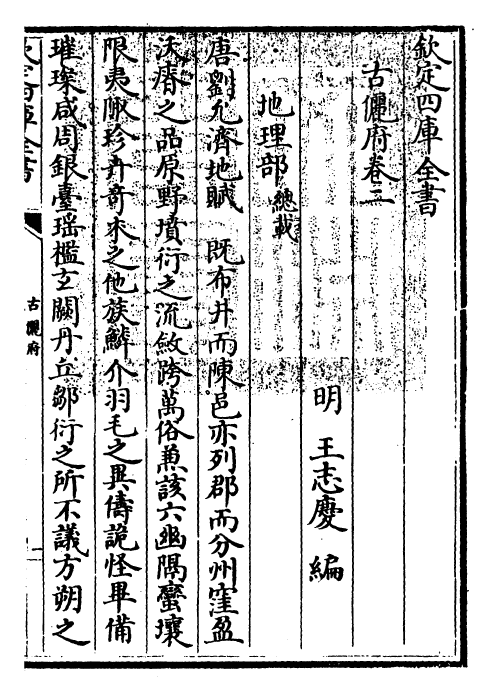 欽定四庫全書
古儷府卷三
明 王志慶 編
地理部 總載
唐劉允濟地賦 既布井而陳邑亦列郡而分州窪盈
沃瘠之品原野墳衍之流敘跨萬俗兼該六幽隅蠻壤
限夷陬珍卉奇木之他族鱗介羽毛之異儔詭怪畢備
璀璨咸周銀臺瑶檻玄闕丹丘鄒衍之所不議方朔之
古儷府